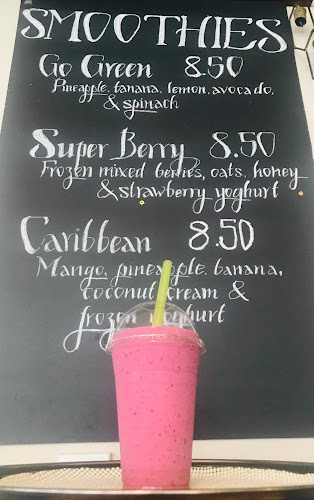 SMOOTHIES
Go Green 8.50
Pineapple, banana, lemon, avocado,
& spinach
Super Berry 8.50
Frozen mixed berries, oats, honey
& strawberry yoghurt
Caribbean 8.50
Mango, pineapple, banana,
coconut cream &
frozen yoghurt